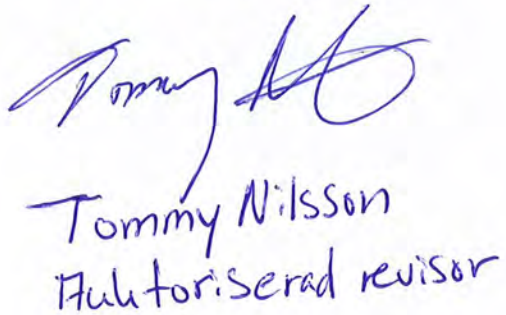 Tommy N
Tommy Nilsson
Auktoriserad revisor